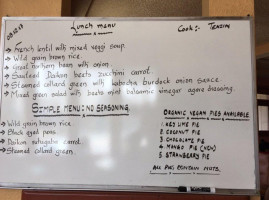 Lunch menu
Cook:- TENZIN
→ French lentil with mixed veggi soup.
→ Wild grain brown rice.
→ Great northern bean with onion.
→ Sauteed Daikon beets zucchini carrot.
→ Steamed collard green with kabocha burdock onion sauce
→ Mixed green salad with beets mint balsamic vinegar agave dressing.
SIMPLE MENU:NO SEASONING.
→ Wild grain brown rice.
→ Black eyed peas.
→ Daikon rutugaba carrot.
→ Steamed collard green.
ORGANIC VEGAN PIES AVAILABLE
1. KEY LIME PIE
2. COCONUT PIE
3. CHOCOLATE PIE
4. MANGO PIE
5. STRAWBERRY PIE
ALL PIES CONTAIN NUTS.